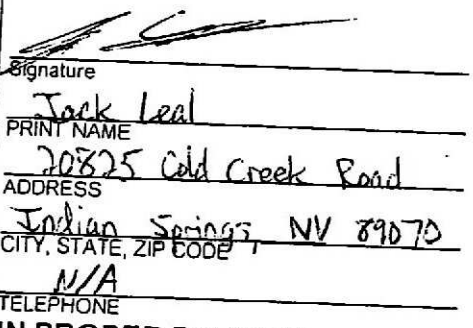 Signature
Jack Leal
PRINT NAME
20825 Cold Creek Road
ADDRESS
Indian Springs, NV 89070
CITY, STATE, ZIP CODE
N/A
TELEPHONE